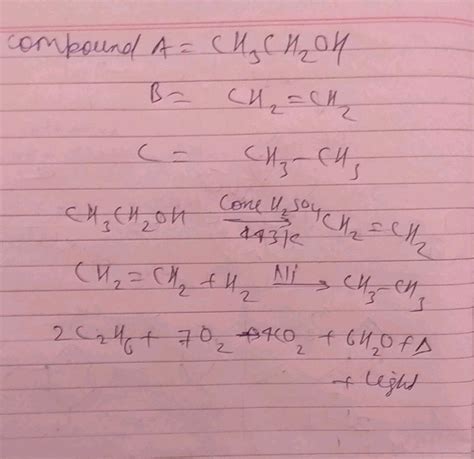 compound A = CH₃CH₂OH
B = CH₂=CH₂
C = CH₃-CH₃
CH₃CH₂OH Conc H₂SO₄ → 443K CH₂=CH₂
CH₂=CH₂ + H₂ Ni → CH₃-CH₃
2C₂H₆ + 7O₂ → 4CO₂ + 6H₂O + Δ
+ light